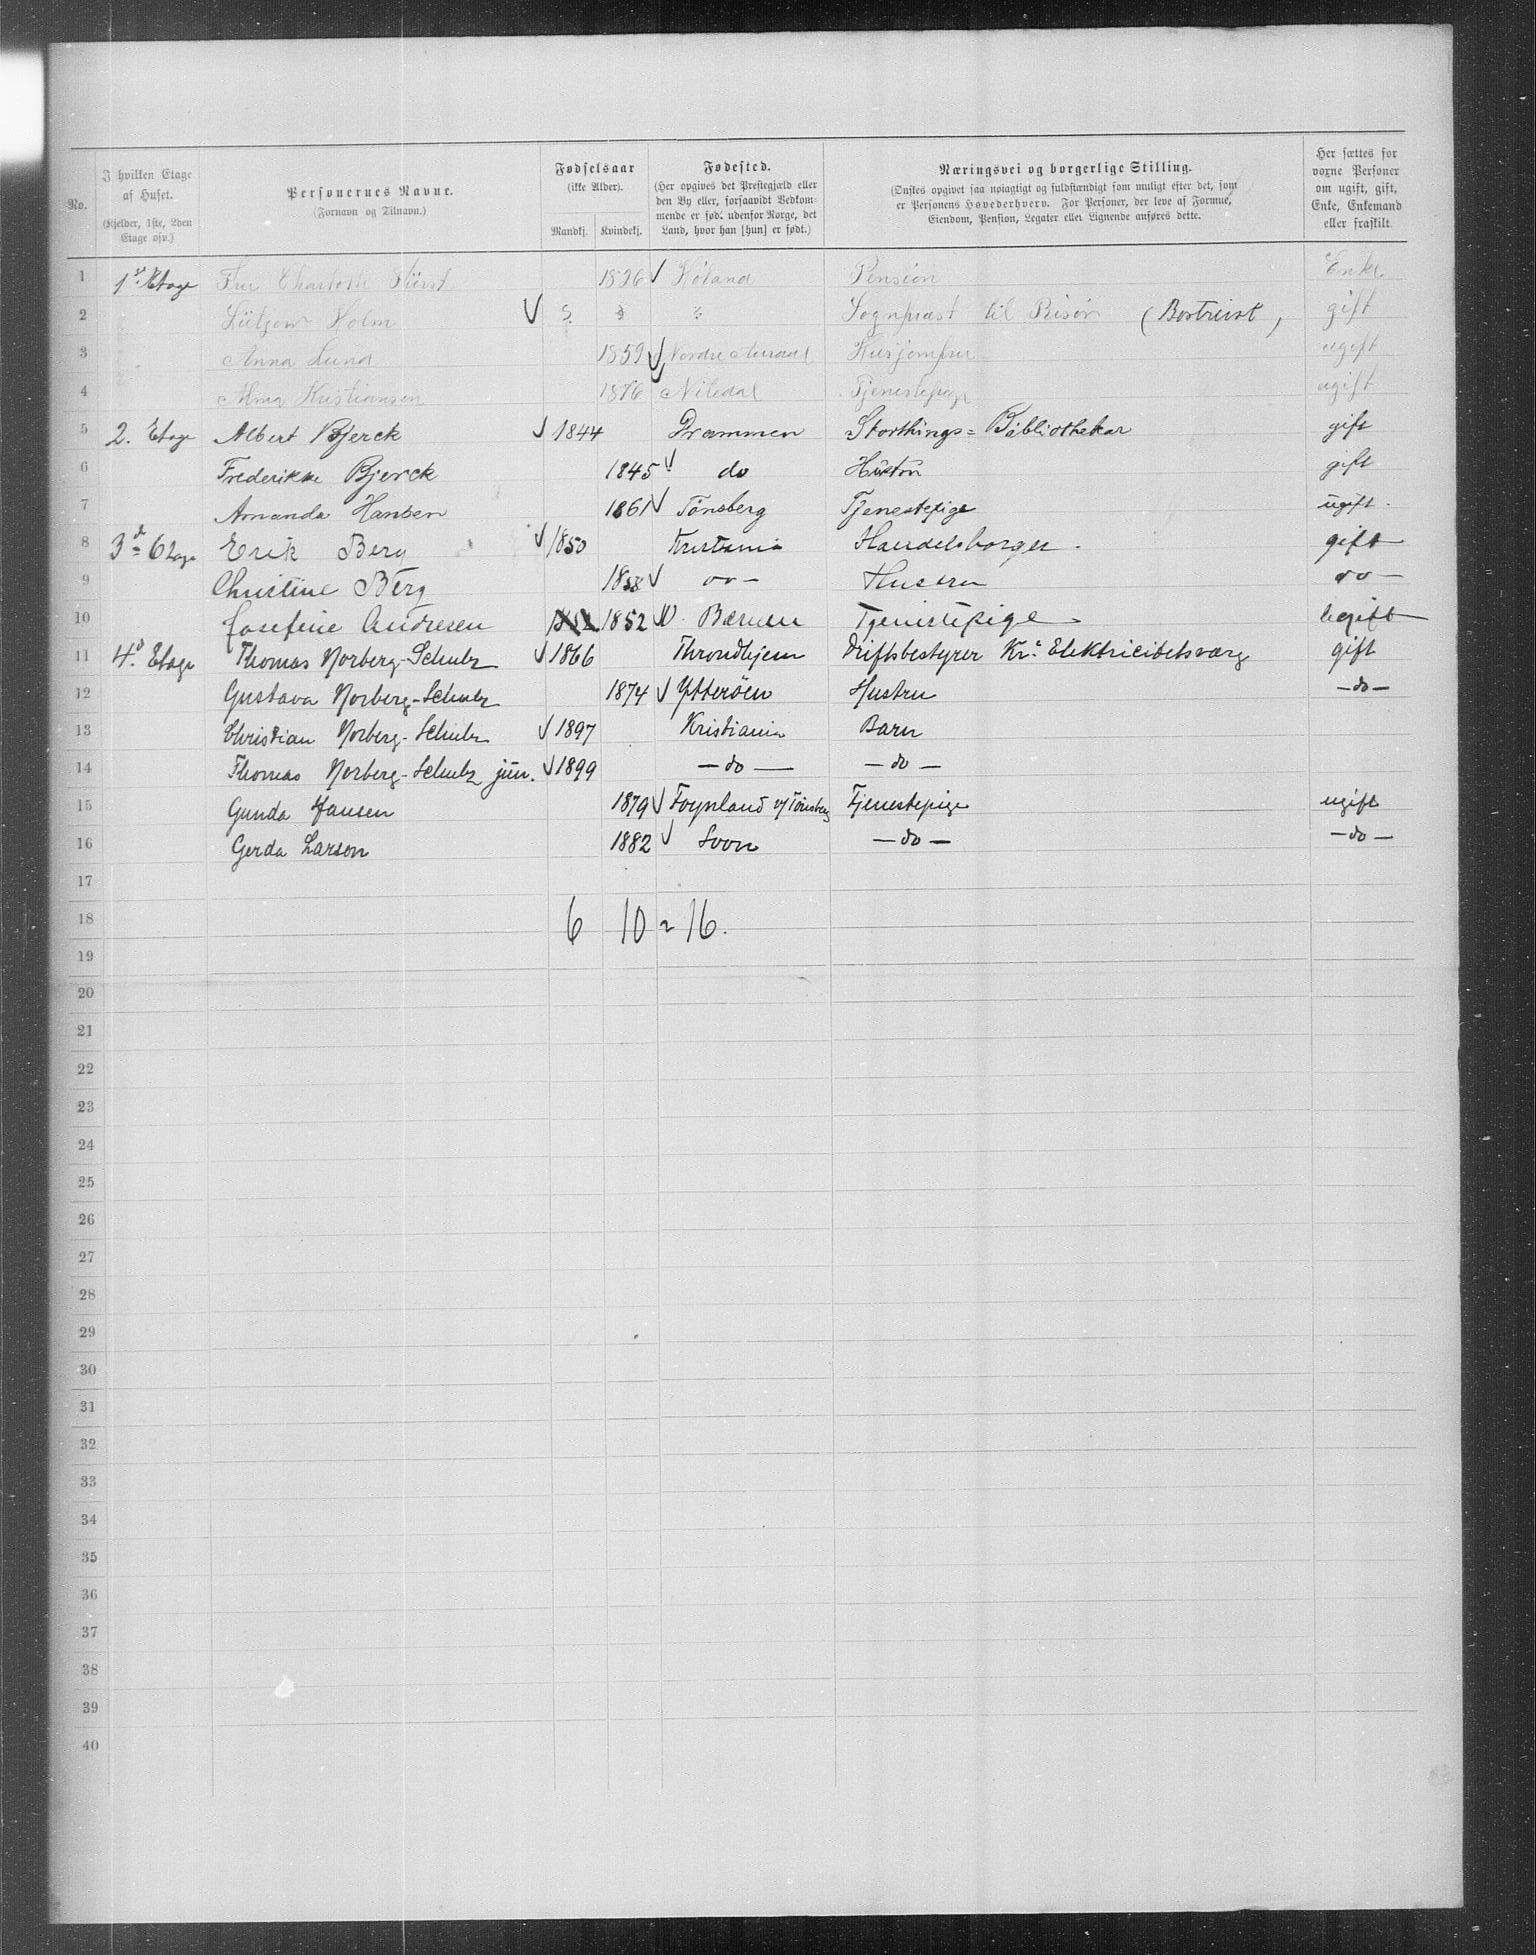 No. | I hvilken Etage af Huset. (Kjelder, 1ste, 2den Etage osv.) | Personernes Navne. (Fornavn og Tilnavn.) | Fødselsaar (ikke Alder). Mandkj. Kvindekj. | Fødested. (Her opgives det Prestegjæld eller den By eller, forsaavidt Vedkommende er fød. udenfor Norge, det Land, hvor han [hun] er født.) | Næringsvei og borgerlige Stilling. (Ønskes opgivet saa nøiagtigt og fuldstændigt som muligt efter det, som er Personens Hovederhverv. For Personer, der leve af Formue, Eiendom, Pension, Legater eller Lignende anføres dette. | Her sættes for voxne Personer om ugift, gift, Enke, Enkemand eller fraskilt.
1 1ste Etage Fru Charlotte Fürst 1826 Høland Pension Enke
2 Lützow Holm ? ? ? Sognpræst til Risør (Bortreist) gift
3 Anna Lund 1859 Nordre Aurdal Husjomfru ugift
4 Alma Kristiansen 1876 Nitedal Tjenestepige ugift
5 2. Etage Albert Bjerck 1844 Drammen Storthings= Bibliothekar gift
6 Frederikke Bjerck 1845 do Hustru gift
7 Amanda Hansen 1861 Tönsberg Tjenestepige ugift.
8 3d Etage Erik Berg 1850 Kristiania Handelsborger. gift
9 Christine Berg 1858 do — Hustru do —
10 Josefine Andresen 1852 1852 Bærum Tjenestepige ugift
11 4. Etage Thomas Norberg-Schulz 1866 Throndhjem Driftsbestyrer Kr.a Elektricitetsværg gift
12 Gustava Norberg-Schulz 1874 Ytterøen Hustru — do —
13 Christian Norberg-Schulz 1897 Kristiania Barn
14 Thomas Norberg-Schulz jun. 1899 — do — — do —
15 Gunda Hansen 1879 Foynland v/Tönsberg Tjenestepige ugift
16 Gerda Larson 1882 — do — — do —
17
18 6 10 = 16.
19
20
21
22
23
24
25
26
27
28
29
30
31
32
33
34
35
36
37
38
39
40